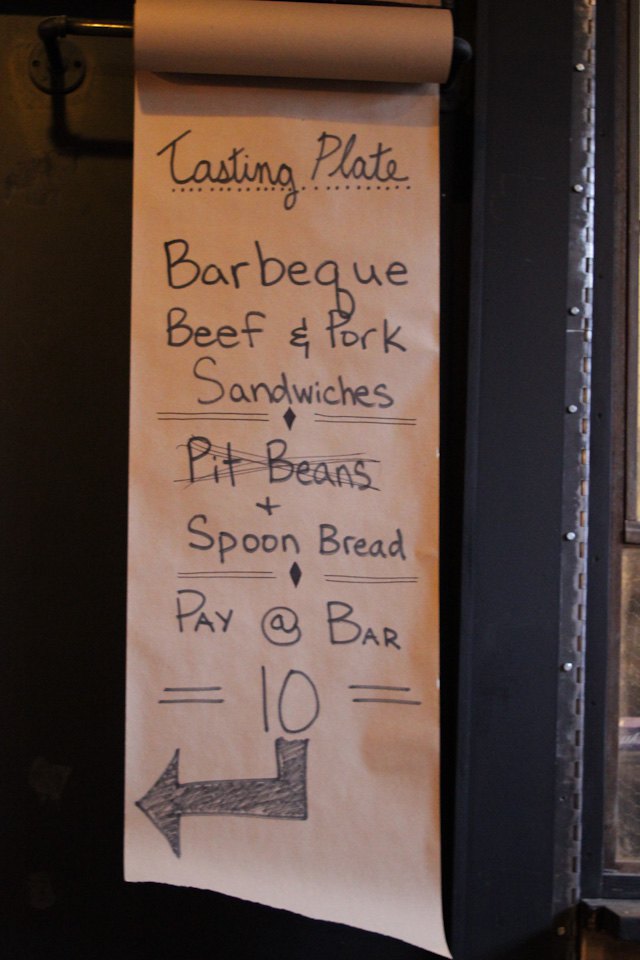 Tasting Plate
Barbeque
Beef & Pork
Sandwiches
Pit Beans
+
Spoon Bread
PAY @ BAR
10